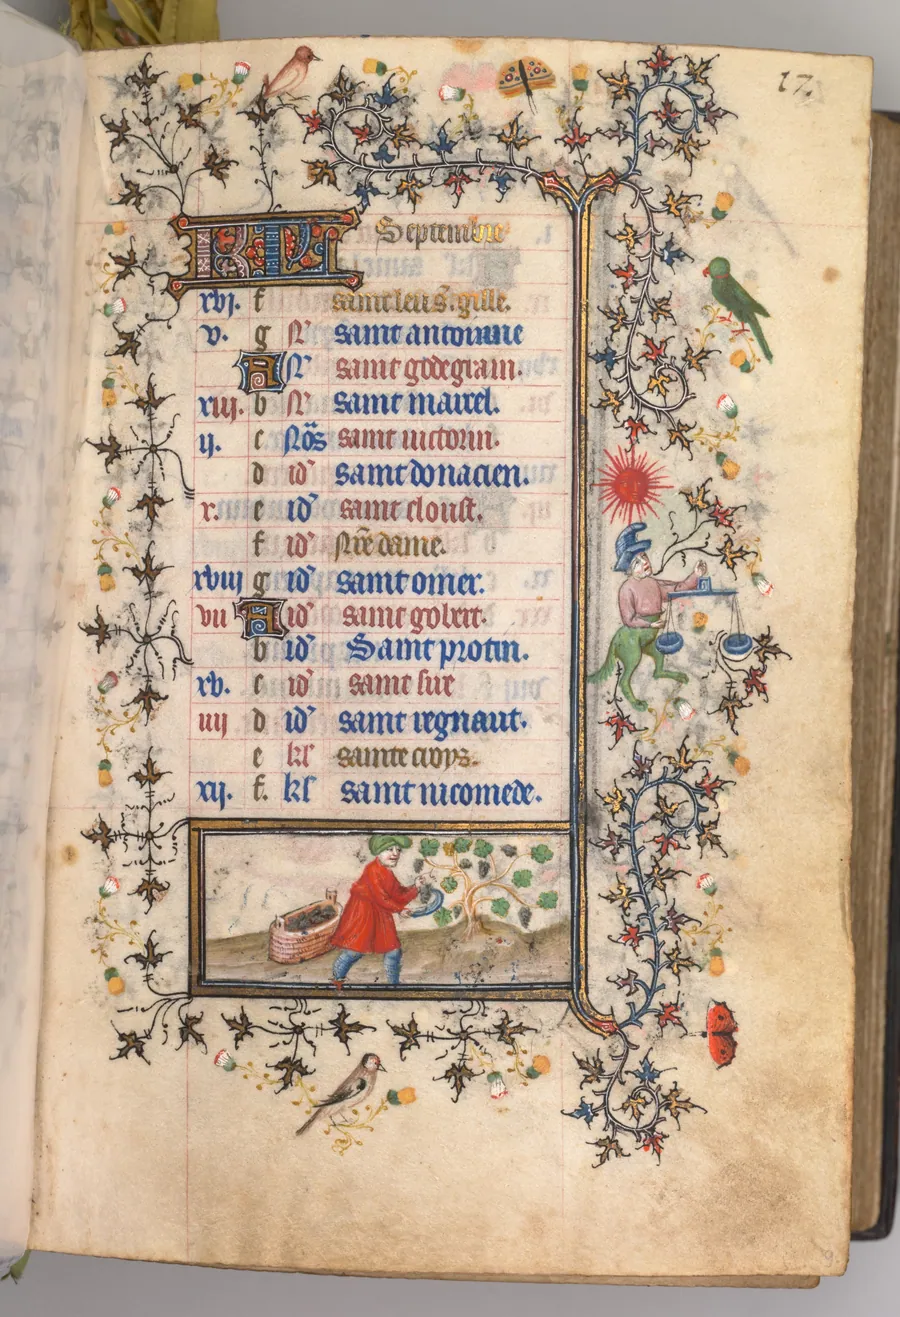 17.
KL Septembre
xvj. f saint leu s. gille.
v. g N saint antoinne
A N saint godegran.
xiij. b N saint maxel.
ij. c Nos saint victorin.
d id saint donacien.
x. e id saint cloust.
f id Nre dame.
xviij g id saint omer.
vij A id saint gobert.
b id Saint protin.
xv. c id saint sire
iiij d id saint regnaut.
e kl sainte croys.
xij. f. kl saint nicomede.